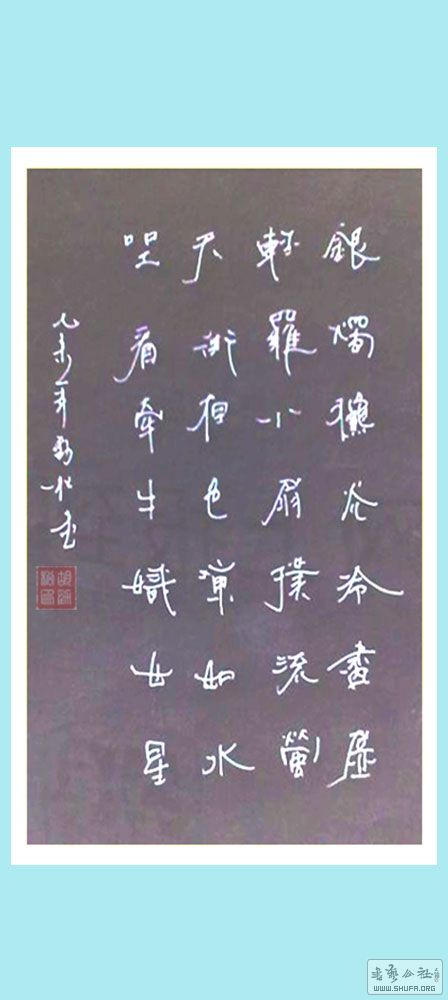 銀燭龝光冷畫屏
輕羅小扇撲流螢
天街夜色涼如水
坐看牽牛織女星
乙未年
书艺公社
WWW.SHUFA.ORG